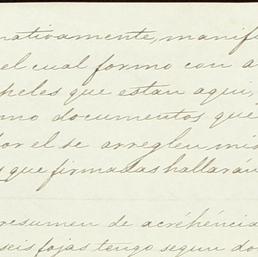 nativamente, manif
el cual formo con a
peles que estan aqui,
mo documentos que
or el se arreglen mis
que firmadas hallarán
resumen de
seis fojas tengo segun do